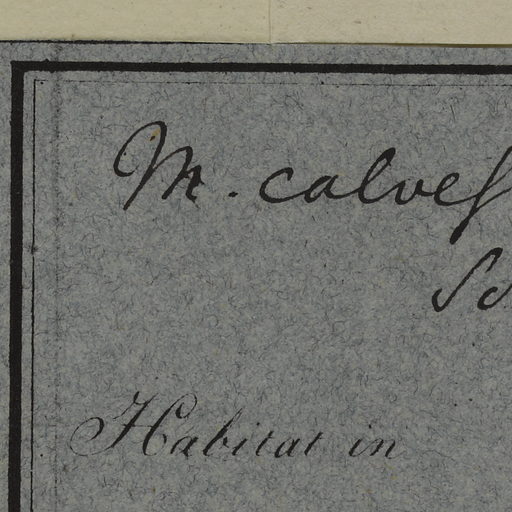 M. calves
Sc
Habitat in